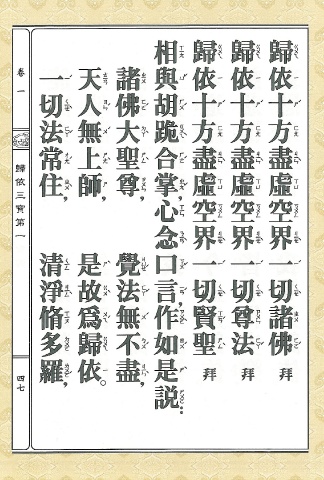 歸依十方盡虛空界一切諸佛 拜
歸依十方盡虛空界一切尊法 拜
歸依十方盡虛空界一切賢聖 拜
相與胡跪合掌,心念口言,作如是說:
諸佛大聖尊, 覺法無不盡,
天人無上師, 是故為歸依。
一切法常住, 清淨脩多羅,
卷一
歸依三寶第一
四七